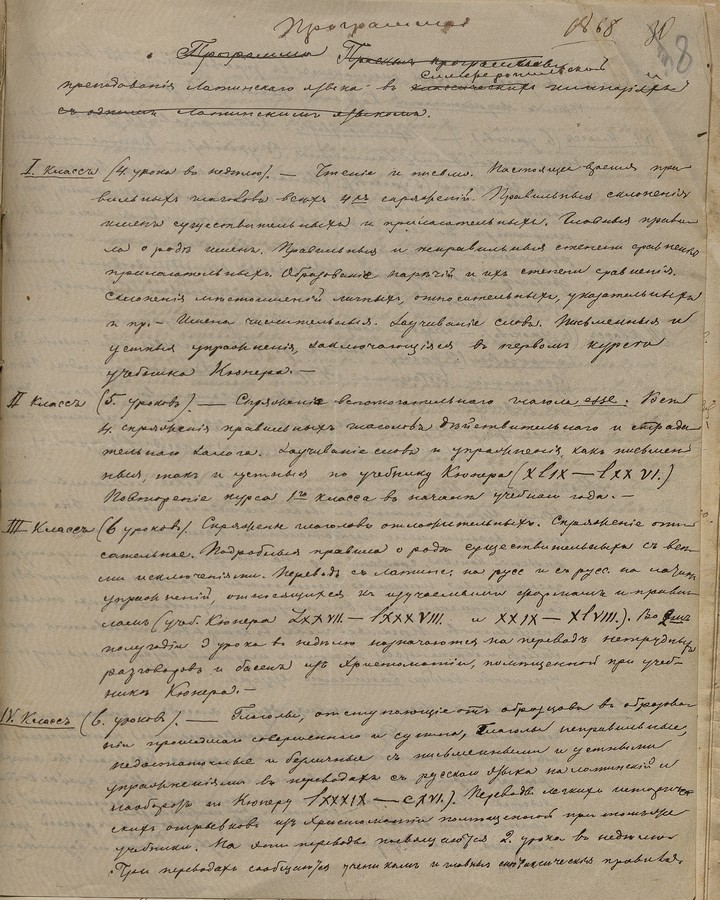 Программа
1868 30
8
Программа
Симферопольской
преподаванія Латинскаго языка въ классическихъ гимназіяхъ
съ однимъ латинскимъ языкомъ.
I. Классъ (4 урока въ недѣлю). — Чтеніе и письмо. Настоящее время пра-
вильныхъ глаголовъ всѣхъ 4хъ спряженій. Правильныя склоненія
именъ существительныхъ и прилагательныхъ. Главныя прави-
ла о родѣ именъ. Правильныя и неправильныя степени сравненія
прилагательныхъ. Образованіе нарѣчій и ихъ степени сравненія.
Склоненія мѣстоименій личныхъ, относительныхъ, указательныхъ
и пр. — Имена числительныя. Заучиваніе словъ. Письменныя и
устныя упражненія, заключающіяся въ первомъ курсѣ
учебника Кюнера. —
II Классъ (5. уроковъ). — Спряженіе вспомогательнаго глагола esse. Всѣ
4 спряженія правильныхъ глаголовъ дѣйствительнаго и страда-
тельнаго залога. Заучиваніе словъ и упражненія, какъ письмен-
ныя, такъ и устныя по учебнику Кюнера (XLIX — LXXVI.)
Повтореніе курса 1го класса въ началѣ учебнаго года. —
III Классъ (6 уроковъ). Спряженіе глаголовъ отложительныхъ. Спряженіе опи-
сательное. Подробныя правила о родѣ существительныхъ съ все-
ми исключеніями. Переводъ съ латинс. на русс. и съ русс. на латин.
упражненій относящихся къ изучаемымъ формамъ и прави-
ламъ (учеб. Кюнера LXXVII — LXXXVIII. и XXIX — XLVIII.). Во 2мъ
полугодіи 2 урока въ недѣлю назначаются на переводъ нетрудныхъ
разговоровъ и басенъ изъ Христоматіи, помѣщенной при учеб-
никѣ Кюнера. —
IV. Классъ (6. уроковъ). — Глаголы, отступающіе отъ образцовъ въ образова-
ніи прошедшаго совершеннаго и супина, Глаголы неправильные,
недостаточные и безличные съ письменными и устными
упражненіями въ переводахъ съ русскаго языка на латинскій и
наоборотъ по Кюнеру LXXXIX — CXVI.). Переводъ легкихъ историче-
скихъ отрывковъ изъ Христоматіи помѣщенной при томъ же
учебникѣ. На эти переводы посвящаются 2. урока въ недѣлю
При переводахъ сообщаются ученикамъ и главныя синтаксическія правила.